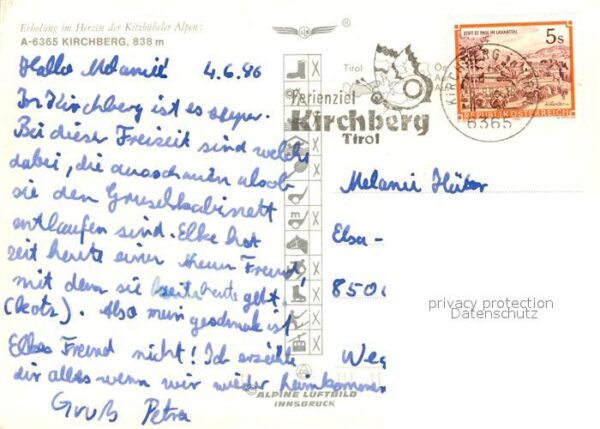 Erholung im Herzen der Kitzbüheler Alpen:
A-6365 KIRCHBERG, 838 m
Hallo Melanie 4.6.86
In Kirchberg ist es super.
Bei dieser Freizeit sind welche
dabei, die ausschauen alsob
sie den Gruselkabinett
entlaufen sind. Elke hat
seit heute einen neuen Freund
mit dem sie heute geht!
(kotz). Also mein geschmak ist
Elkes Freund nicht! Ich erzähle
dir alles wenn wir wieder heimkommen
Gruß Petra
Tirol
Ferienziel
Kirchberg
Tirol
STIFT ST. PAUL IM LAVANTTAL
5s
REPUBLIK ÖSTERREICH
KIRCHBERG
6365
Melanie
Elsa-
850
Weg
privacy protection
Datenschutz
© ALPINE LUFTBILD
INNSBRUCK